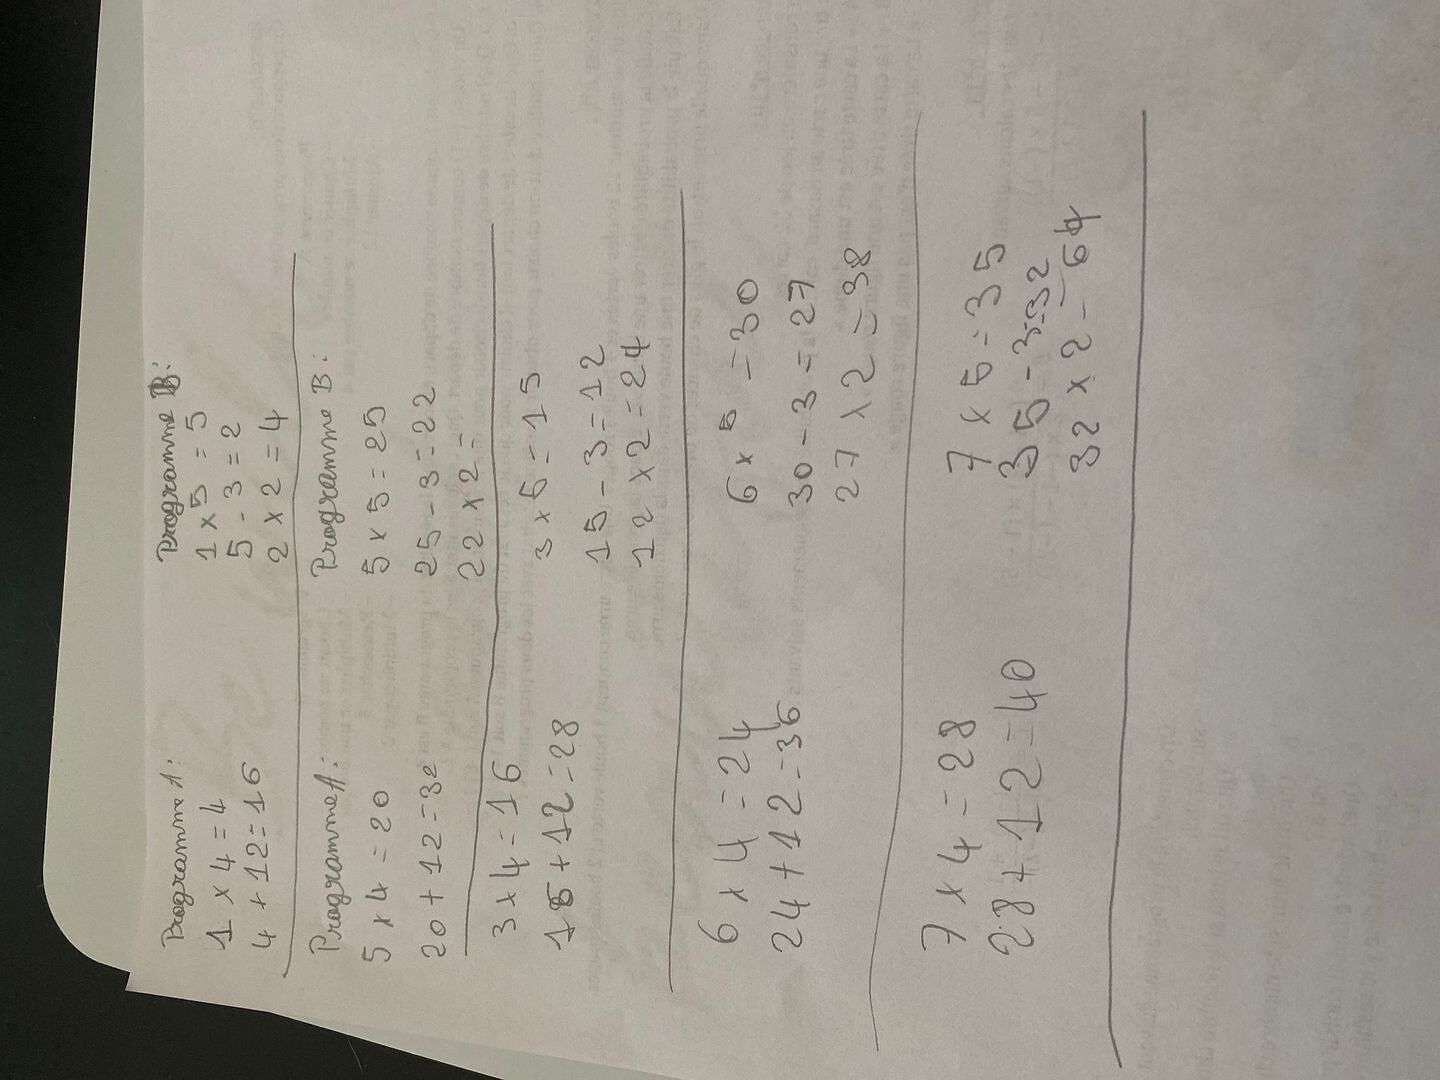 Programme A:
1 x 4 = 4
4 + 12 = 16
Programme B:
1 x 5 = 5
5 - 3 = 2
2 x 2 = 4
Programme A:
5 x 4 = 20
20 + 12 = 32
Programme B:
5 x 5 = 25
25 - 3 = 22
22 x 2 =
3 x 4 = 16
16 + 12 = 28
3 x 5 = 15
15 - 3 = 12
12 x 2 = 24
6 x 4 = 24
24 + 12 = 36
6 x 5 = 30
30 - 3 = 27
27 x 2 = 38
7 x 4 = 28
28 + 12 = 40
7 x 5 = 35
35 - 3 = 32
32 x 2 = 64